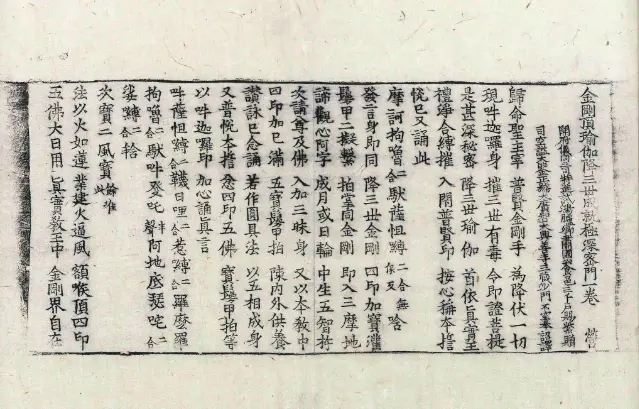 金剛頂瑜伽降三世成就極深密門一卷 營
開府儀同三司特進試鴻臚卿肅國公食邑三千戶賜紫贈
大廣智大興善寺三藏沙門不空奉 詔譯
歸命聖主宰 普賢金剛手 為降伏一切
現吽迦羅身 摧三世有毒 令即證菩提
是甚深秘密 降三世瑜伽 首依真實王
禮等合縛摧 入開普賢印 按心稱本誓
悅已又誦此
摩訶拘嚕二合馱薩怛嚩二合無唅
發言身即同 降三世金剛 四印加寶灌
鬘甲二擬繫 拍掌同金剛 即入三摩地
諦觀心阿字 成月或日輪 中生五智杵
次請尊及佛 入加三昧身 又以本教中
四印加已滿 五寶鬘甲拍 陳內外供養
讚詠已念誦 若作圓具法 以五相成身
又普悅本誓 念四印五佛 寶鬘甲拍等
以吽迦羅印 加心誦真言
吽薩怛嚩二合韈日哩二合惹嚩二合羅麼羅
拘嚕二合馱吽癹吒半聲阿地底瑟咤二合
娑嚩二合唅
次寶二風寶餘准此
法以火如蓮 業建火逼風 額喉頂四印
五佛大日用 真實教王中 金剛界自在